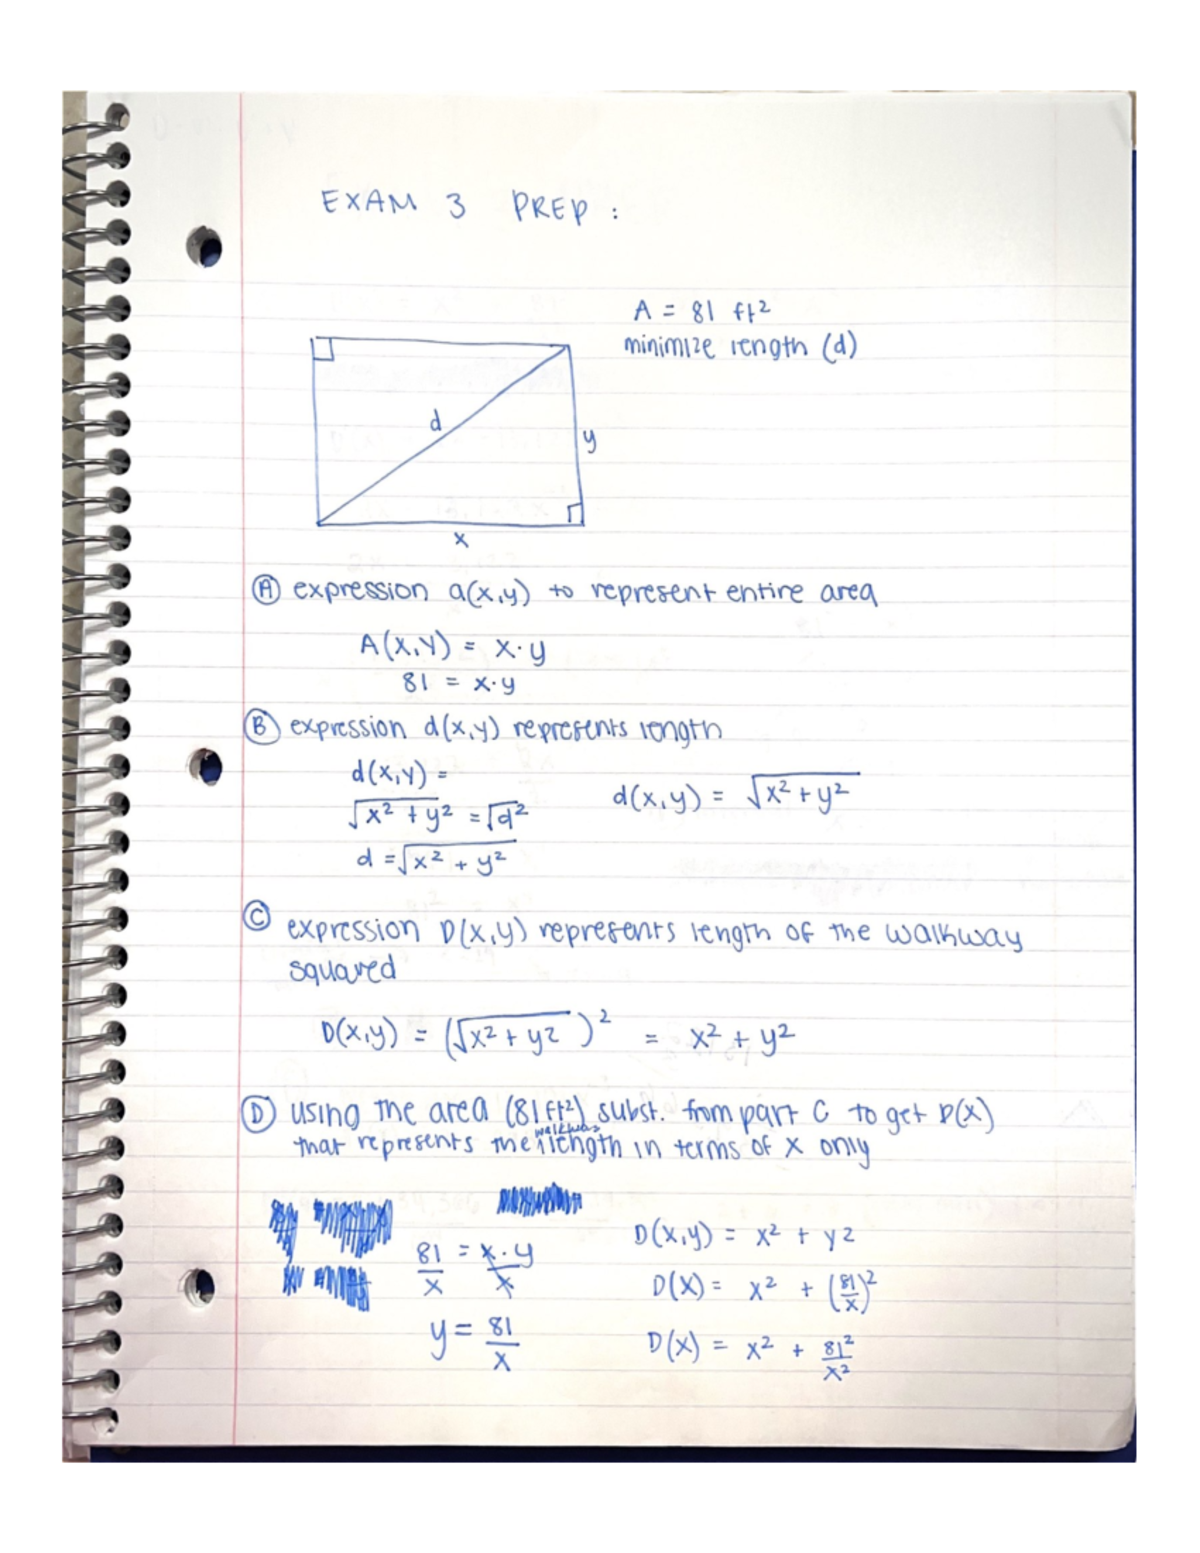 EXAM 3 PREP :
A = 81 ft²
minimize length (d)
d
y
x
Ⓐ expression a(x,y) to represent entire area
A(x,y) = x·y
81 = x·y
Ⓑ expression d(x,y) represents length
d(x,y) =
√x² + y² = √d²
d = √x² + y²
d(x,y) = √x² + y²
Ⓒ expression D(x,y) represents length of the walkway
squared
D(x,y) = (√x² + y²)² = x² + y²
Ⓓ using the area (81ft²) subst. from part C to get D(x)
that represents the walkway length in terms of x only
81/x = x·y/x
y = 81/x
D(x,y) = x² + y2
D(x) = x² + (81/x)²
D(x) = x² + 81²/x²